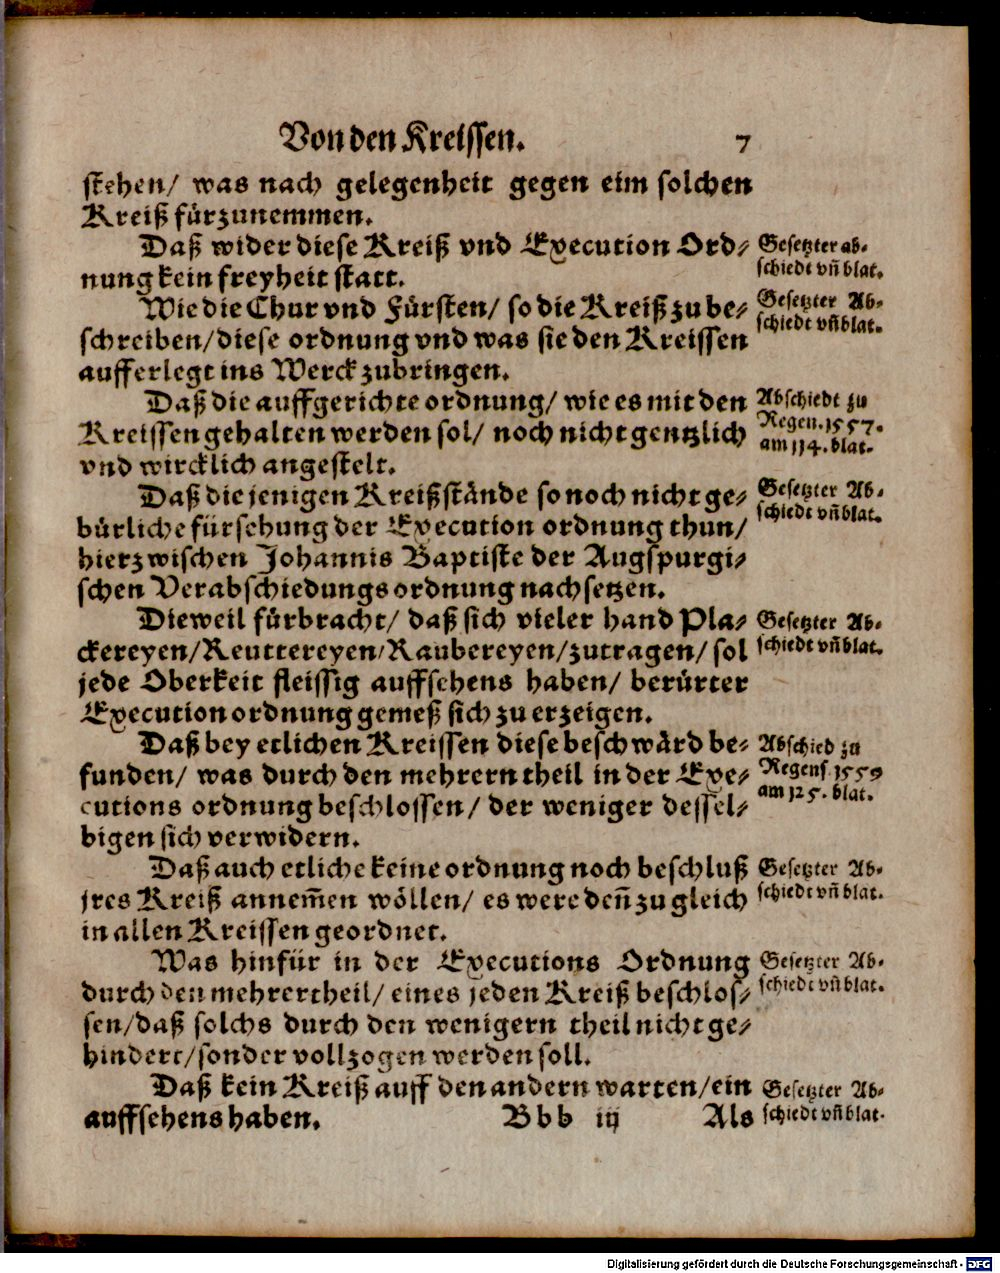 Von den Kreissen. 7
stehen/ was nach gelegenheit gegen eim solchen
Kreiß fürzunemmen.
Daß wider diese Kreiß vnd Execution Ord-
nung kein freyheit statt.
Gesetzter ab-
schiedt vñ blat.
Wie die Chur vnd Fürsten/ so die Kreiß zu be-
schreiben/ diese ordnung vnd was sie den Kreissen
aufferlegt ins Werck zubringen.
Gesetzter Ab-
schiedt vñ blat.
Daß die auffgerichte ordnung/ wie es mit den
Kreissen gehalten werden sol/ noch nicht gentzlich
vnd wircklich angestelt.
Abschiedt zu
Regen. 1557.
am 114. blat.
Daß die jenigen Kreißstände so noch nicht ge-
bürliche fürsehung der Execution ordnung thun/
hierzwischen Johannis Baptiste der Augspurgi-
schen Verabschiedungs ordnung nachsetzen.
Gesetzter Ab-
schiedt vñ blat.
Dieweil fürbracht/ daß sich vieler hand Pla-
ckereyen/ Reuttereyen/ Raubereyen/ zutragen/ sol
jede Oberkeit fleissig auffsehens haben/ berürter
Execution ordnung gemeß sich zu erzeigen.
Gesetzter Ab-
schiedt vñ blat.
Daß bey etlichen Kreissen diese beschwärd be-
funden/ was durch den mehrern theil in der Exe-
cutions ordnung beschlossen/ der weniger dessel-
bigen sich verwidern.
Abschied zu
Regens. 1559
am 125. blat.
Daß auch etliche keine ordnung noch beschluß
jres Kreiß annem̃en wöllen/ es were deñ zu gleich
in allen Kreissen geordnet.
Gesetzter Ab-
schiedt vñ blat.
Was hinfür in der Executions Ordnung
durch den mehrertheil/ eines jeden Kreiß beschlos-
sen/ daß solchs durch den wenigern theil nicht ge-
hindert/ sonder vollzogen werden soll.
Gesetzter Ab-
schiedt vñ blat.
Daß kein Kreiß auff den andern warten/ ein
auffsehens haben.
Gesetzter Ab-
schiedt vñ blat.
Bbb iij Als
Digitalisierung gefördert durch die Deutsche Forschungsgemeinschaft - DFG